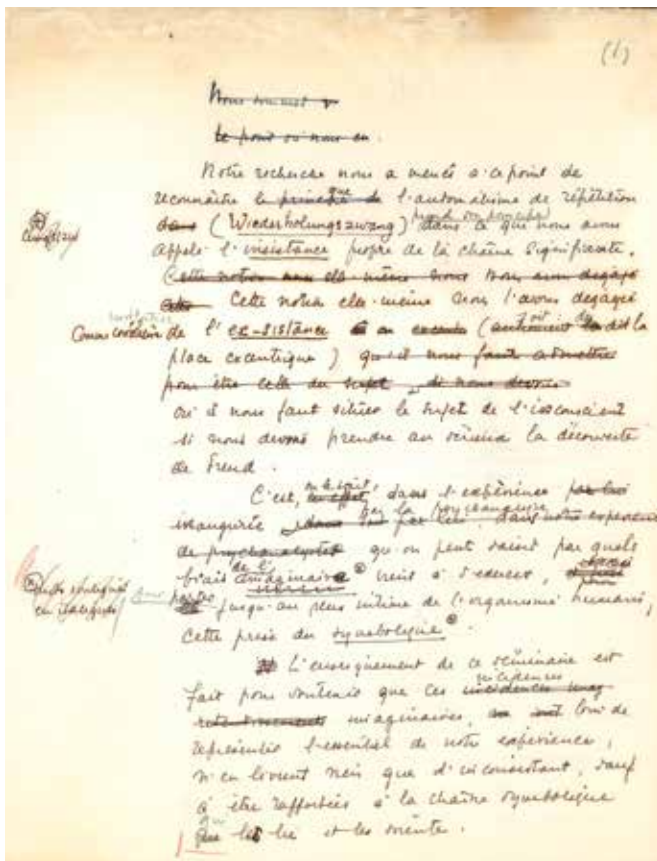 (1)
Nous sommes
Le point où nous en
Notre recherche nous a menés à ce point de
reconnaître le principe que de l'automatisme de répétition
dans (Wiederholungszwang) prend son principe dans ce que nous avons
appelé l'insistance propre de la chaîne signifiante.
Cette notion elle-même nous l'avons dégagé
Cette notion elle-même nous l'avons dégagée
Comme corrélative de l'ex-sistance (soit de la
place excentrique) qu'il nous faut admettre
pour être celle du sujet si nous devons
où il nous faut situer le sujet de l'inconscient
si nous devons prendre au sérieux la découverte
de Freud.
C'est, on le sait, en effet, dans l'expérience par lui
inaugurée par la psychanalyse dans notre expérience
de psychanalystes qu'on peut saisir par quels
biais de l'imaginaire vient à s'exercer,
jusqu'au plus intime de l'organisme humain,
cette prise du symbolique.
L'enseignement de ce séminaire est
fait pour soutenir que ces incidences
imaginaires, loin de
représenter l'essentiel de notre expérience,
n'en livrent rien que d'inconsistant, sauf
à être rapportées à la chaîne symbolique
qui les lie et les oriente.